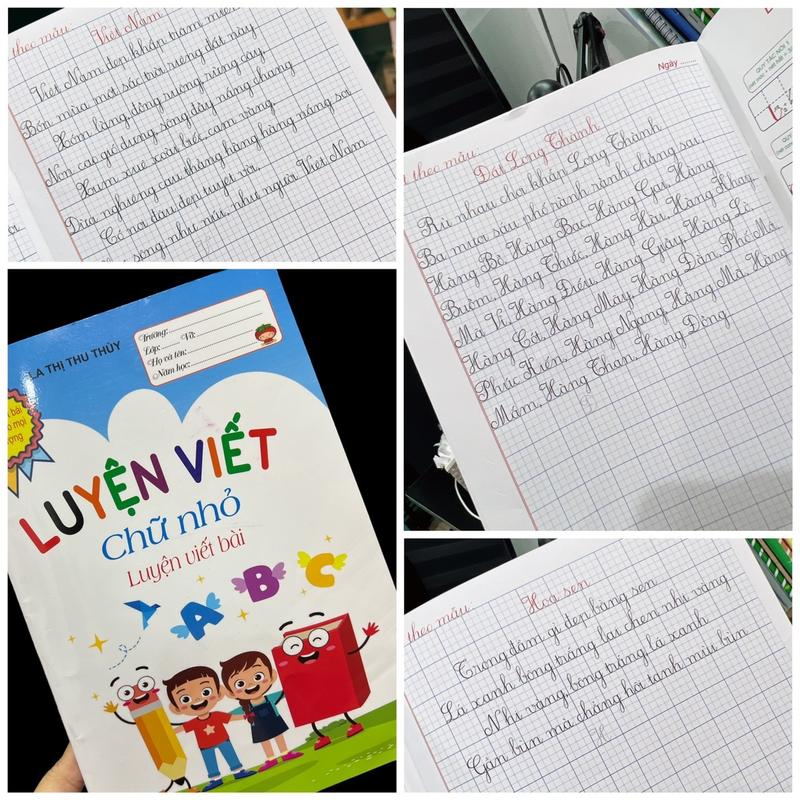 theo mẫu: Việt Nam
Việt Nam đẹp khắp trăm miền
Bốn mùa một sắc trời riêng đất này
Xóm làng, đồng ruộng, rừng cây,
Non cao gió dựng, sông đầy nắng chang
Xum xuê xoài biếc, cam vàng,
Dừa nghiêng, cau thẳng hàng hàng nắng soi
Có nơi đâu đẹp tuyệt vời,
sông như núi, như người Việt Nam
LA THỊ THU THỦY
Trường:
Lớp: Vở:
Họ và tên:
Năm học:
bài
mọi
tượng
LUYỆN VIẾT
Chữ nhỏ
Luyện viết bài
A B C
Ngày
theo mẫu: Đất Long Thành
Rủ nhau chơi khắp Long Thành
Ba mươi sáu phố rành rành chẳng sai
Hàng Bồ, Hàng Bạc, Hàng Gai, Hàng
Buồm, Hàng Thiếc, Hàng Hài, Hàng Khay,
Mã Vĩ, Hàng Điếu, Hàng Giày, Hàng Lờ,
Hàng Cót, Hàng Mây, Hàng Đàn, Phố Mới,
Phúc Kiến, Hàng Ngang, Hàng Mã, Hàng
Mắm, Hàng Than, Hàng Đồng
QUY TẮC NỐI 5
theo mẫu Hoa sen
Trong đầm gì đẹp bằng sen
Lá xanh bông trắng lại chen nhị vàng
Nhị vàng, bông trắng, lá xanh
Gần bùn mà chẳng hôi tanh mùi bùn